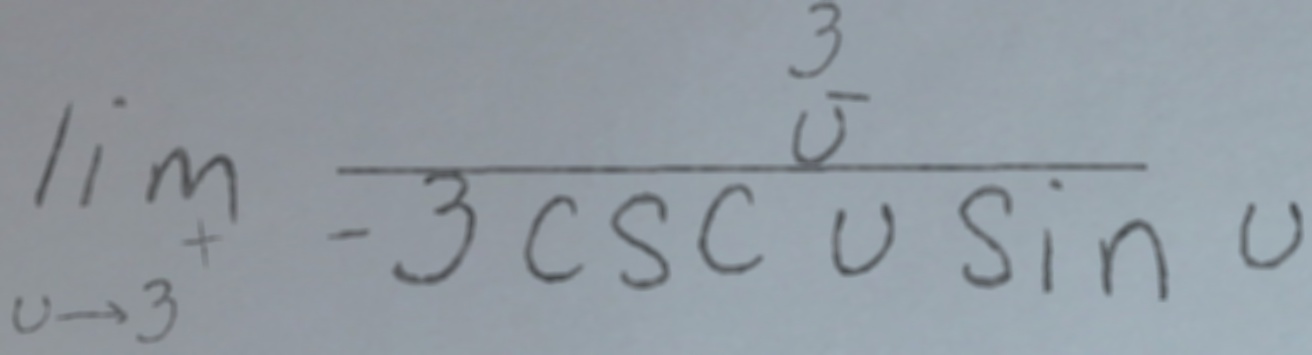 \lim_{u \to 3^+} \frac{\frac{3}{u}}{-3 \csc u \sin u}